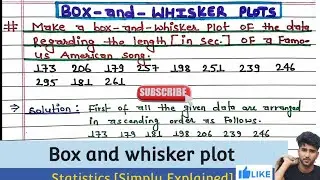 BOX-and-WHISKER PLOTS
Make a box-and-whisker plot of the data
Regarding the length [in sec.] of a Famo-
us American song.
173 206 179 257 198 251 239 246
295 181 261
SUBSCRIBE
Solution: First of all the given data are arranged
in ascending order as follows.
173 179 181 198 206 239 246
Box and whisker plot
LIKE
Statistics [Simply Explained]